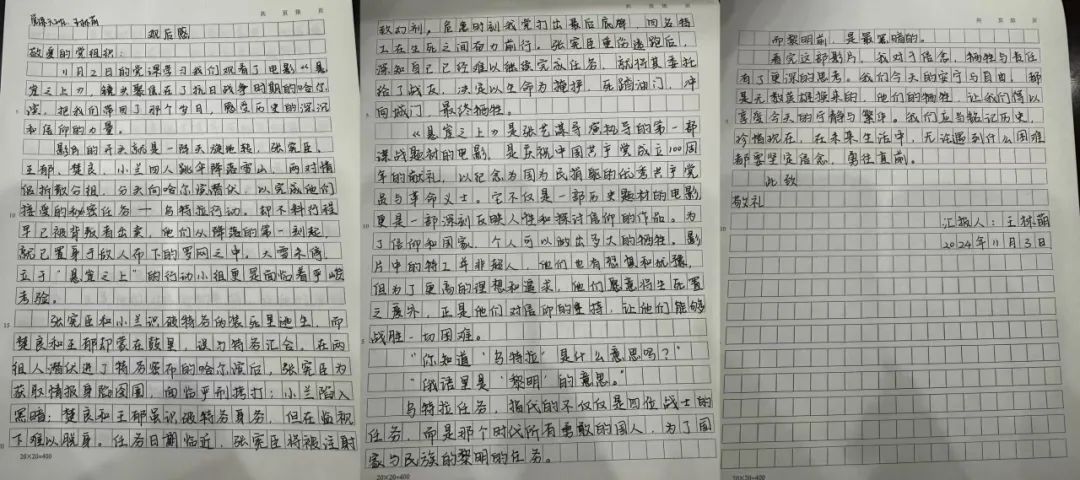 共 页 第 页
观后感
敬爱的党组织:
11月2日的党课学习我们观看了电影《悬
崖之上》,镜头聚焦在了抗日战争时期的哈尔
滨,把我们带回了那个岁月,感受历史的沉沉
和信仰的力量。
影片的开头就是一阵天旋地转,张宪臣、
王郁、楚良、小兰四人跳伞降落雪山,两对情
侣拆散分组,分头向哈尔滨潜伏,以完成他们
接受的秘密任务——乌特拉行动。却不料行程
早已被叛徒出卖,他们从降落的第一刻起,
就已置身于敌人布下的罗网之中,大雪未停,
立于“悬崖之上”的行动小组更是面临着严峻
考验。
张宪臣和小兰识破特务伪装死里逃生,而
楚良和王郁却蒙在鼓里,误与特务汇合。在两
组人潜伏进了特务密布的哈尔滨后,张宪臣为
获取情报身陷囹圄,面临严刑拷打;小兰陷入
黑暗;楚良和王郁虽识破特务身份,但在监视
下难以脱身。任务日期临近,张宪臣将被注射
20×20=400
共 页 第 页
致幻剂,危急时刻我党打出最后底牌,四名特
工在生死之间奋力前行。张宪臣重伤逃跑后,
深知自己已经难以继续完成任务,就将其委托
给了战友,决定以生命为掩护,死踏油门,冲
向城门,最终牺牲。
《悬崖之上》是张艺谋导演执导的第一部
谍战题材的电影,是庆祝中国共产党成立100周
年的献礼,以纪念为国为民捐躯的优秀共产党
员与革命义士。它不仅是一部历史题材的电影
更是一部深刻反映人性和探讨信仰的作品。为
了信仰和国家,个人可以做出多大的牺牲。影
片中的特工并非超人,他们也有恐惧和犹豫,
但为了更高的理想和追求,他们愿意将生死置
之度外,正是他们对信仰的坚持,让他们能够
战胜一切困难。
“你知道‘乌特拉’是什么意思吗?”
“俄语里是‘黎明’的意思。”
乌特拉任务,指代的不仅仅是四位战士的
任务,而是那个时代所有勇敢的国人,为了国
家与民族的黎明的任务。
20×20=400
共 页 第 页
而黎明前,是最黑暗的。
看完这部影片,我对于信念、牺牲与责任
有了更深的思考。我们今天的安宁与自由,都
是无数英雄换来的,他们的牺牲,让我们得以
享受今天的宁静与繁华。我们应当铭记历史,
珍惜现在,在未来生活中,无论遇到什么困难
都要坚定信念,勇往直前。
此致
敬礼
汇报人:王林萌
2024年11月3日
20×20=400